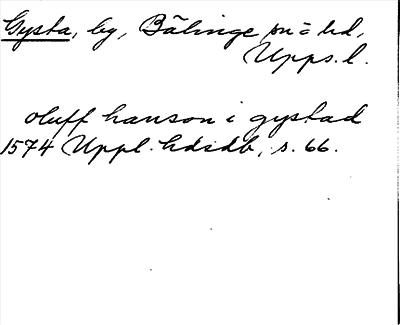 Gysta, by, Bälinge sn = hd,
Upps. l.
oluff hanson i gystad
1574 Uppl. hdsdb, s. 66.